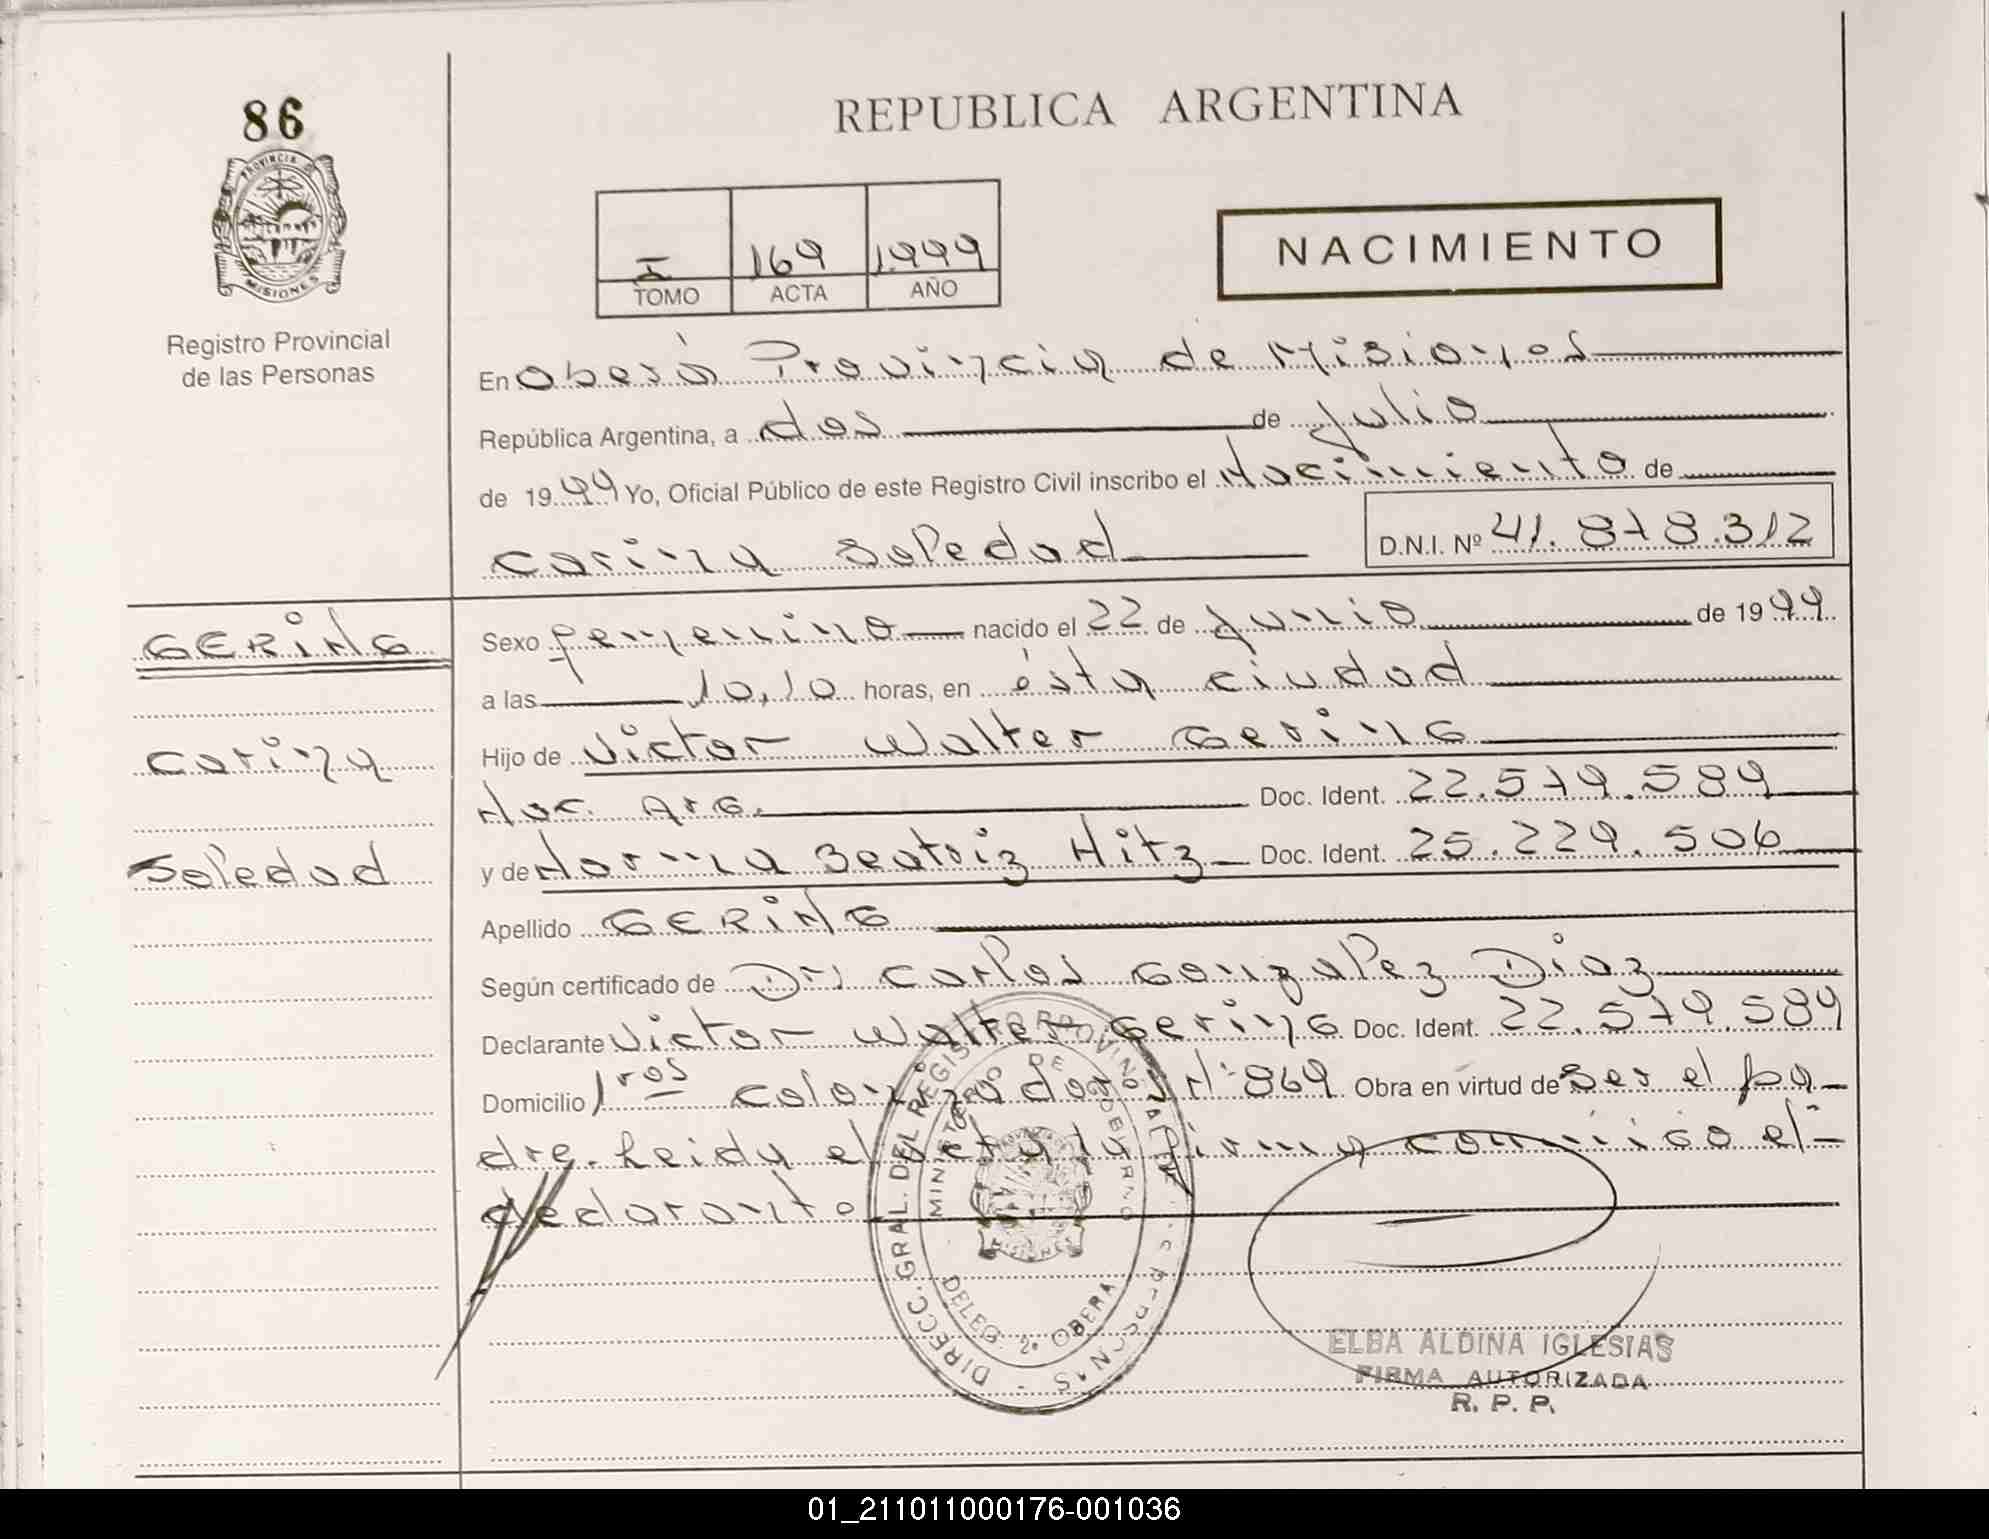 86
PROVINCIA
MISIONES
Registro Provincial
de las Personas
REPUBLICA ARGENTINA
I 169 1.999
TOMO ACTA AÑO
NACIMIENTO
En Oberá Provincia de Misiones
República Argentina, a dos de Julio
de 19 99 Yo, Oficial Público de este Registro Civil inscribo el Nacimiento de
Carina Soledad D.N.I. Nº 41.878.312
GERING
Carina
Soledad
Sexo femenino nacido el 22 de Junio de 19 99
a las 10,10 horas, en ésta ciudad
Hijo de Victor Walter Gering
Nac. Arg. Doc. Ident. 22.579.589
y de Norma Beatriz Hitz Doc. Ident. 25.229.506
Apellido GERING
Según certificado de Dr. Carlos Gonzalez Diaz
Declarante Victor Walter Gering Doc. Ident. 22.579.589
Domicilio 1ros Colonizadores Nº 869 Obra en virtud de ser el pa-
dre. Leida el acta la firma conmigo el-
declarante
DIRECC. GRAL. DEL REGISTRO PROVINCIAL DE
MINISTERIO DE GOBIERNO
DELEG. 2º OBERA
MISIONES
ELBA ALDINA IGLESIAS
FIRMA AUTORIZADA
R. P. P.
01_211011000176-001036